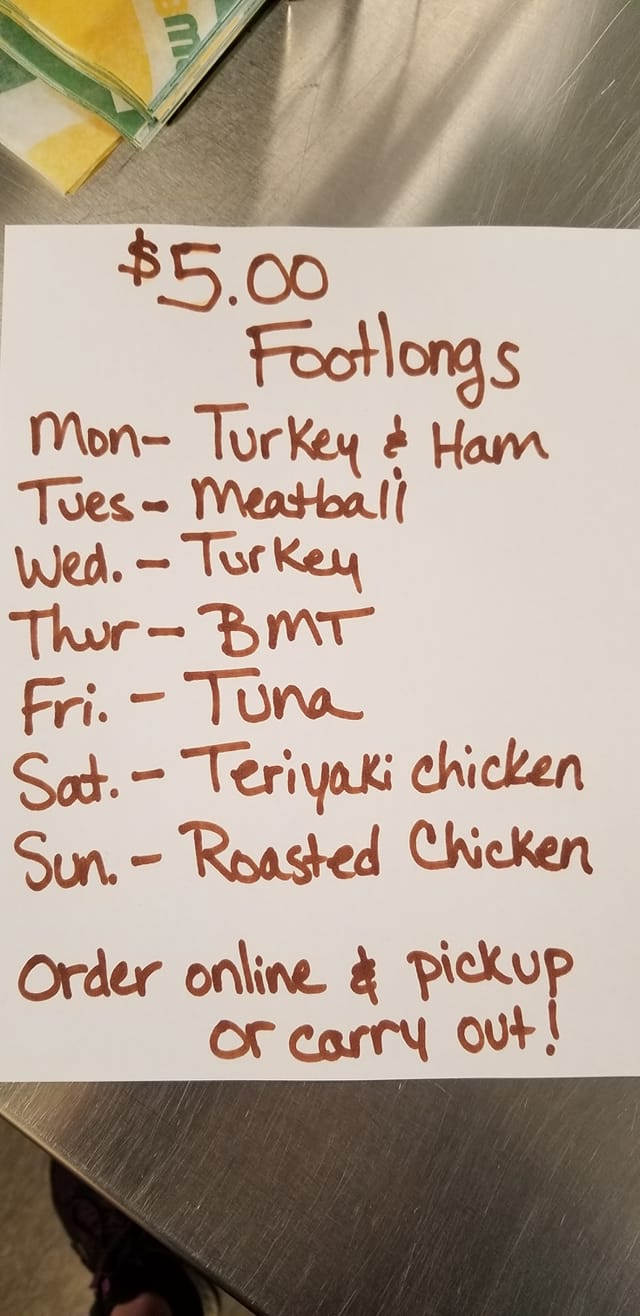 $5.00
Footlongs
Mon- Turkey & Ham
Tues- Meatball
Wed. - Turkey
Thur - BMT
Fri. - Tuna
Sat. - Teriyaki chicken
Sun. - Roasted Chicken
Order online & pickup
or carry out!